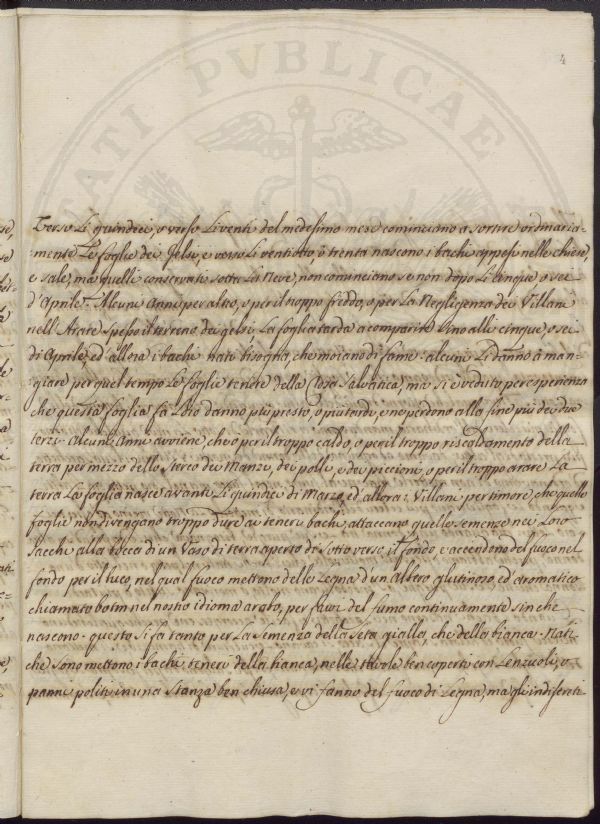 4
Verso Li quindeci, o verso Li venti del medesimo mese cominciano a sortire ordinaria-
mente Le foglie dei gelsi, e verso Li ventiotto, o trenta nascono i bachi appesi nelle chiese,
e sale, ma quelli conservati sotto La Neve, non cominciano se non dopo Li cinque, o sei
d'Aprile. Alcuni Anni per altro, o per il troppo freddo, o per La Negligenza dei Villani
nell'Arare spesso il terreno dei gelsi La foglia tarda a comparire sino alli cinque, o sei
di Aprile, ed' allora i bachi nati bisogna, che moiano di fame: alcuni Li danno à man-
giare per quel tempo Le foglie tenere della Rosa Salvatica, ma si è veduto per esperienza
che questa foglia fà Loro danno più presto, o più tardi, e ne perdono alla fine più dei due
terzi. Alcuni Anni avviene, che o per il troppo caldo, o per il troppo riscaldamento della
terra per mezzo dello sterco dei Manzi, dei polli, e dei piccioni, o per il troppo arare La
terra La foglia nasce avanti Li quindici di Marzo, ed' allora i Villani per timore, che quelle
foglie non divengano troppo dure ai teneri bachi, attaccano quelle semenze nei Loro
sacchi alla bocca di un Vaso di terra aperto di sotto verso il fondo, e accendono del fuoco nel
fondo per il buco, nel qual fuoco mettono delle Legna d'un albero glutinoso, ed' aromatico
chiamato botm nel nostro idioma arabo, per farvi del fumo continuamente sin che
nascono: questo si fa tanto per La semenza della Seta gialla, che della bianca. Nati
che sono mettono i bachi teneri della bianca, nelle tavole ben coperte con Lenzuoli, o
panni politi in una Stanza ben chiusa, e vi fanno del fuoco di Legna, ma gli indiferiti
STATI PVBLICAE